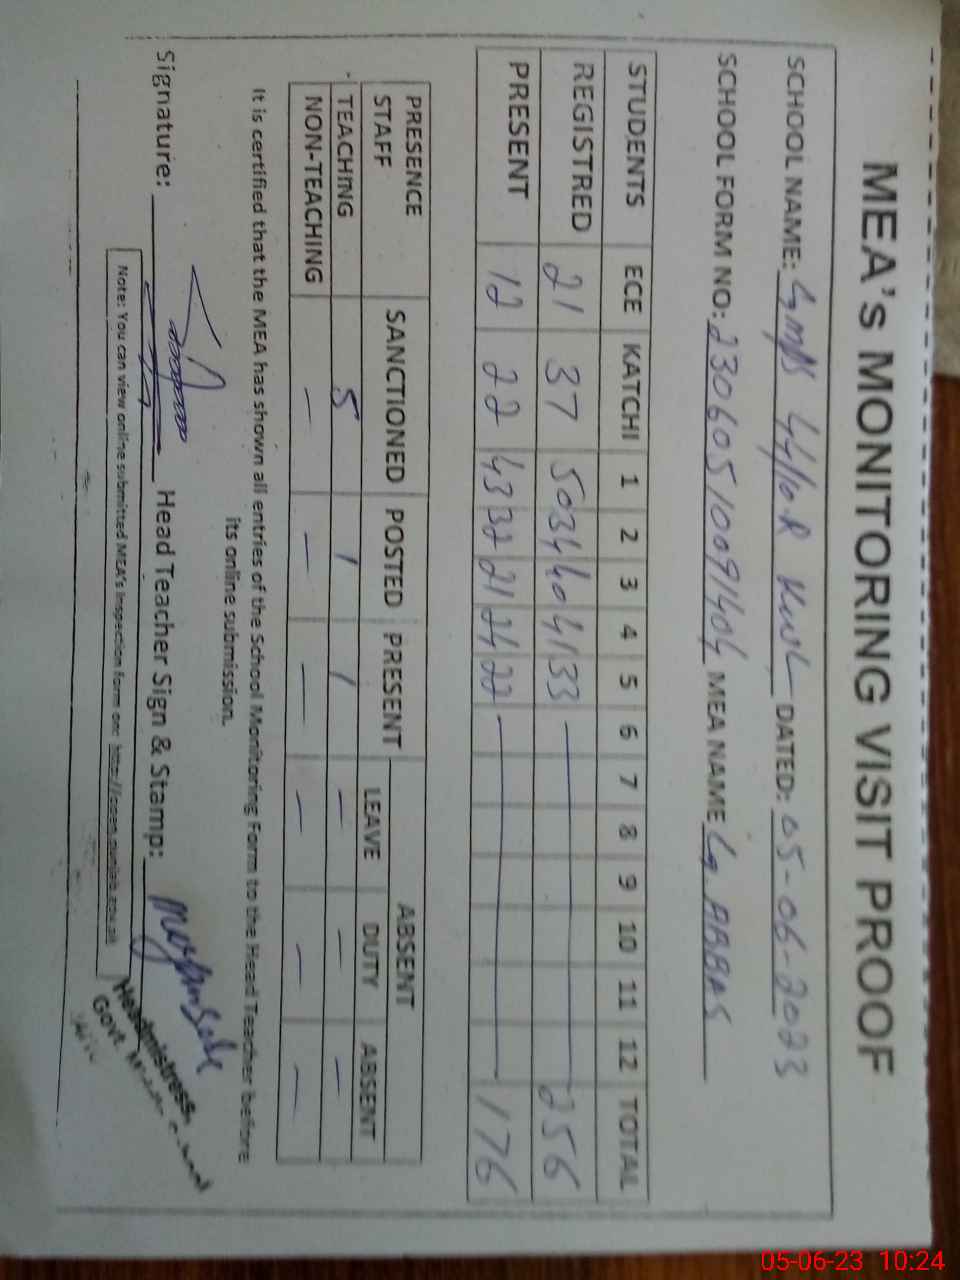 MEA's MONITORING VISIT PROOF
SCHOOL NAME: GMPS 44/10.R KWL DATED: 05-06-2023
SCHOOL FORM NO: 23060510091404 MEA NAME G. ABBAS
STUDENTS ECE KATCHI 1 2 3 4 5 6 7 8 9 10 11 12 TOTAL
REGISTRED 21 37 50 34 40 41 33 — 256
PRESENT 12 22 43 32 21 24 22 — 176
PRESENCE STAFF SANCTIONED POSTED PRESENT ABSENT
LEAVE DUTY ABSENT
TEACHING 5 1 1 — — —
NON-TEACHING — — — — — —
It is certified that the MEA has shown all entries of the School Monitoring Form to the Head Teacher before
its online submission.
Signature: Head Teacher Sign & Stamp:
Headmistress
Govt.
Note: You can view online submitted MEA's inspection form on:
05-06-23 10:24